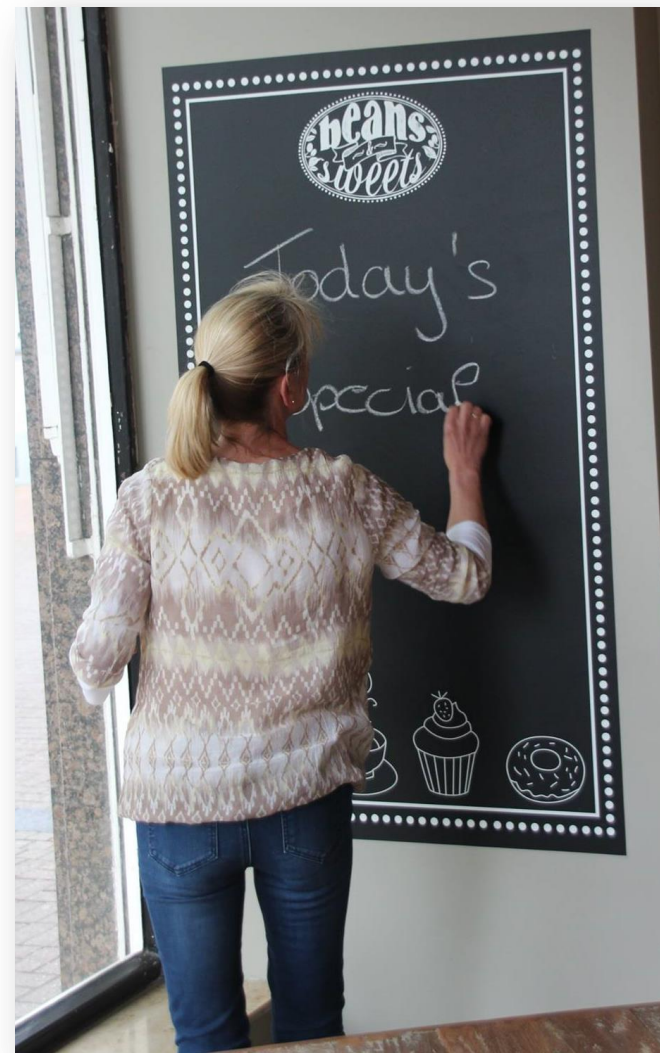 beans
&
sweets
Today's
Special